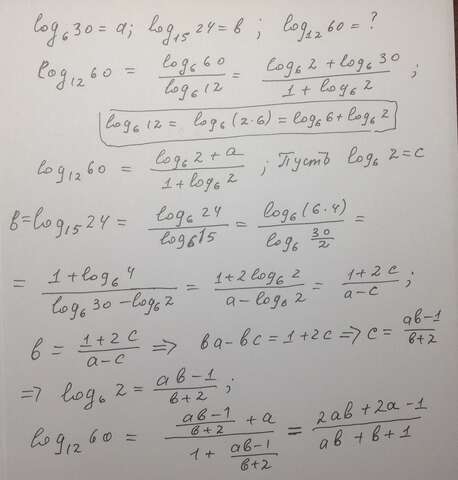 log₆30 = a; log₁₅24 = в ; log₁₂60 = ?
log₁₂60 = log₆60 / log₆12 = (log₆2 + log₆30) / (1 + log₆2) ;
log₆12 = log₆(2·6) = log₆6 + log₆2
log₁₂60 = (log₆2 + a) / (1 + log₆2) ; Пусть log₆2 = c
в = log₁₅24 = log₆24 / log₆15 = log₆(6·4) / log₆(30/2) =
= (1 + log₆4) / (log₆30 - log₆2) = (1 + 2log₆2) / (a - log₆2) = (1 + 2c) / (a - c) ;
в = (1 + 2c) / (a - c) => вa - вc = 1 + 2c => c = (aв - 1) / (в + 2)
=> log₆2 = (aв - 1) / (в + 2) ;
log₁₂60 = ((aв - 1) / (в + 2) + a) / (1 + (aв - 1) / (в + 2)) = (2aв + 2a - 1) / (aв + в + 1)